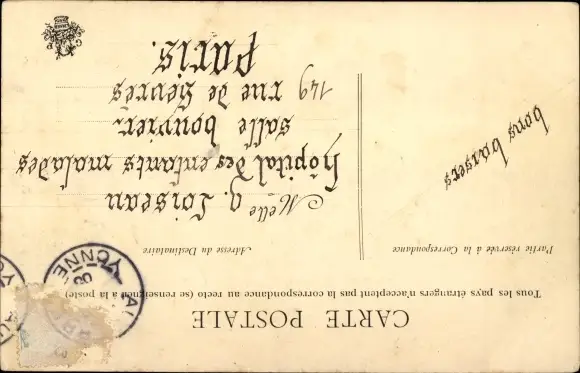 CARTE POSTALE
Tous les pays étrangers n'acceptent pas la correspondance au recto (se renseigner à la poste)
Partie réservée à la Correspondance
Adresse du Destinataire
bons baisers
Melle g. Loiseau
hôpital des enfants malades
salle bouvier
149 rue de Sèvres
Paris.
YONNE